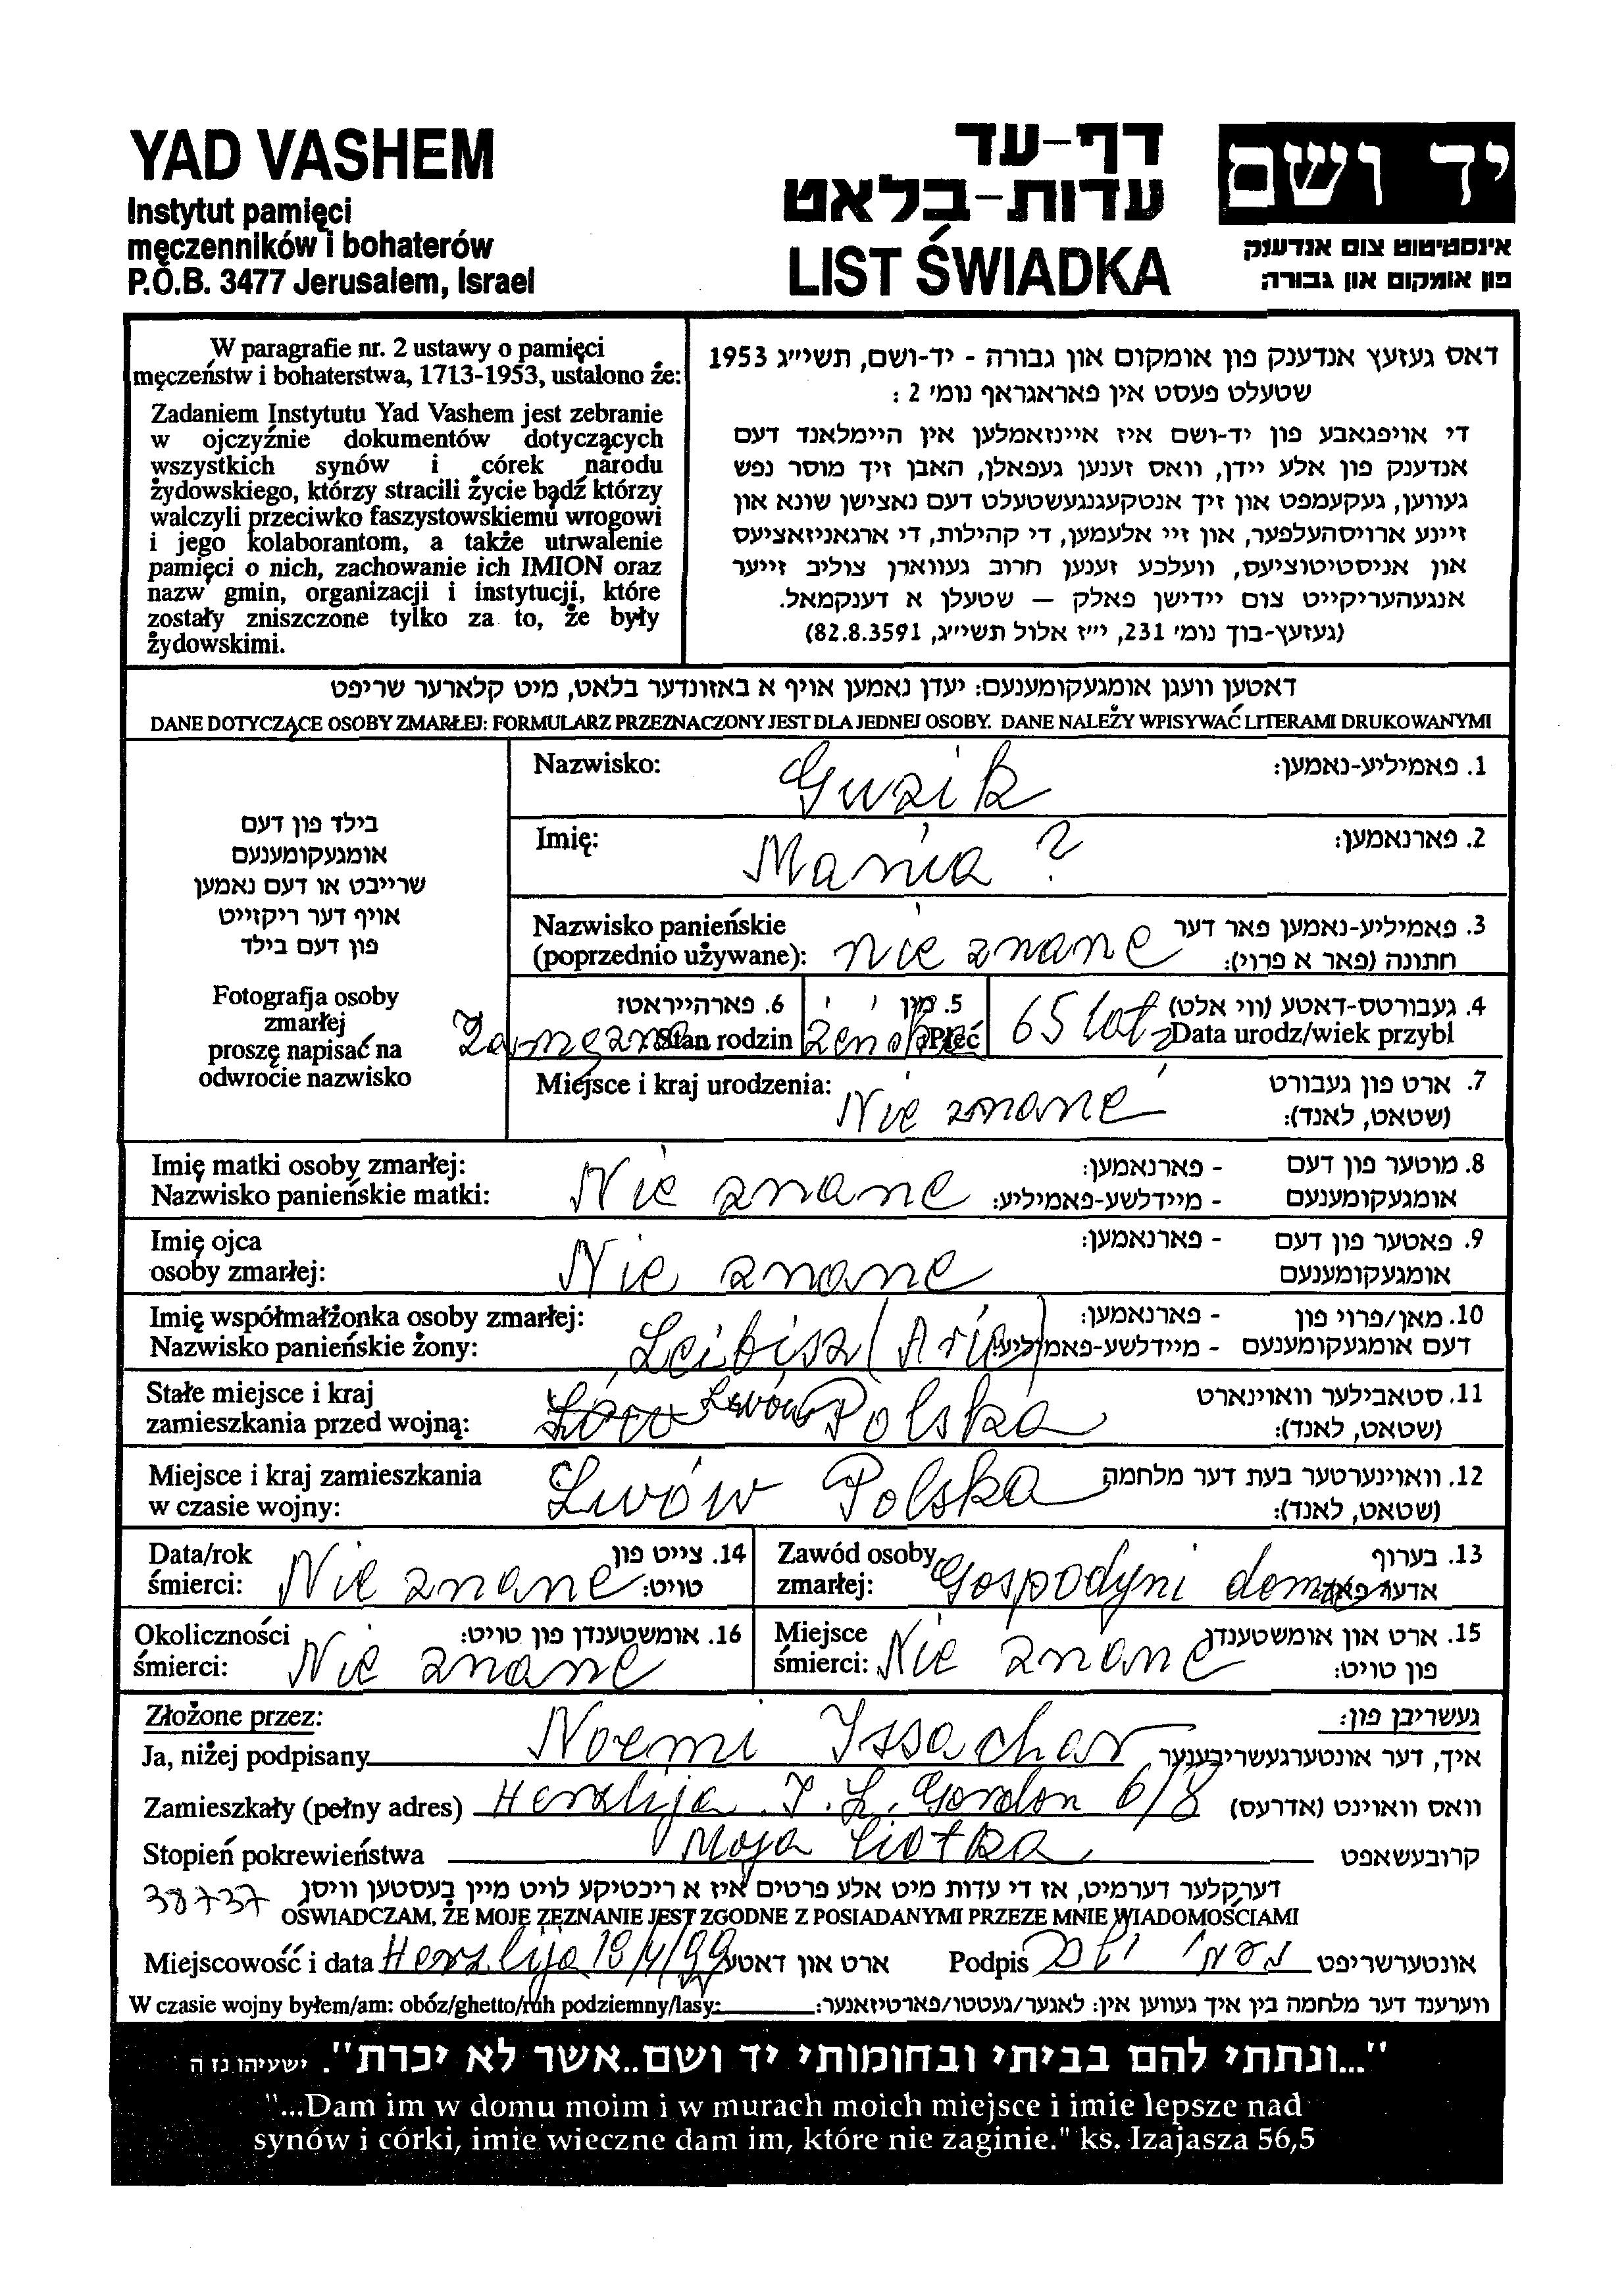 YAD VASHEM
Instytut pamięci
męczenników i bohaterów
P.O.B. 3477 Jerusalem, Israel
דף-עד
עדות-בלאט
LIST ŚWIADKA
יד ושם
אינסטיטוט צום אנדענק
פון אומקום און גבורה
W paragrafie nr. 2 ustawy o pamięci
męczeństw i bohaterstwa, 1713-1953, ustalono że:
Zadaniem Instytutu Yad Vashem jest zebranie
w ojczyźnie dokumentów dotyczących
wszystkich synów i córek narodu
żydowskiego, którzy stracili życie bądź którzy
walczyli przeciwko faszystowskiemu wrogowi
i jego kolaborantom, a także utrwalenie
pamięci o nich, zachowanie ich IMION oraz
nazw gmin, organizacji i instytucji, które
zostały zniszczone tylko za to, że były
żydowskimi.
דאס געזעץ אנדענק פון אומקום און גבורה - יד-ושם, תשי״ג 1953
שטעלט פעסט אין פאראגראף נומ׳ 2 :
די אויפגאבע פון יד-ושם איז איינזאמלען אין היימלאנד דעם
אנדענק פון אלע יידן, וואס זענען געפאלן, האבן זיך מוסר נפש
געווען, געקעמפט און זיך אנטקעגנגעשטעלט דעם נאצישן שונא און
זיינע ארויסהעלפער, און זיי אלעמען, די קהילות, די ארגאניזאציעס
און אניסטיטוציעס, וועלכע זענען חרוב געווארן צוליב זייער
אנגעהעריקייט צום יידישן פאלק — שטעלן א דענקמאל.
(געזעץ-בוך נומ׳ 231, י״ז אלול תשי״ג, 82.8.3591)
דאטען וועגן אומגעקומענעם: יעדן נאמען אויף א באזונדער בלאט, מיט קלארער שריפט
DANE DOTYCZĄCE OSOBY ZMARŁEJ: FORMULARZ PRZEZNACZONY JEST DLA JEDNEJ OSOBY. DANE NALEŻY WPISYWAĆ LITERAMI DRUKOWANYMI
בילד פון דעם
אומגעקומענעם
שרייבט או דעם נאמען
אויף דער ריקזייט
פון דעם בילד
Fotografja osoby
zmarłej
proszę napisać na
odwrocie nazwisko
Nazwisko: Guzik 1. פאמיליע-נאמען:
Imię: Mania ? 2. פארנאמען:
Nazwisko panieńskie 3. פאמיליע-נאמען פאר דער
(poprzednio używane): nie znane חתונה (פאר א פרוי):
6. פארהייראטז 5. מין 4. געבורטס-דאטע (ווי אלט)
Zamężna Stan rodzin żeńska Płeć 65 lat Data urodz/wiek przybl
Miejsce i kraj urodzenia: Nie znane 7. ארט פון געבורט
(שטאט, לאנד):
Imię matki osoby zmarłej: - פארנאמען: 8. מוטער פון דעם
Nazwisko panieńskie matki: Nie znane - מיידלשע-פאמיליע: אומגעקומענעם
Imię ojca - פארנאמען: 9. פאטער פון דעם
osoby zmarłej: Nie znane אומגעקומענעם
Imię współmałżonka osoby zmarłej: - פארנאמען: 10. מאן/פרוי פון
Nazwisko panieńskie żony: Leibisz (Arie) - מיידלשע-פאמיליע: דעם אומגעקומענעם
Stałe miejsce i kraj 11. סטאבילער וואוינארט
zamieszkania przed wojną: Lwów Polska (שטאט, לאנד):
Miejsce i kraj zamieszkania 12. וואוינערטער בעת דער מלחמה
w czasie wojny: Lwów Polska (שטאט, לאנד):
Data/rok 14. צייט פון Zawód osoby 13. בערוף
śmierci: Nie znane טויט: zmarłej: Gospodyni domu אדער פאך:
Okoliczności 16. אומשטענדן פון טויט: Miejsce 15. ארט און אומשטענדן
śmierci: Nie znane śmierci: Nie znane פון טויט:
Złożone przez: געשריבן פון:
Ja, niżej podpisany Noemi Issachar איך, דער אונטערגעשריבענער
Zamieszkały (pełny adres) Herzlija J. L. Gordon 6/8 וואס וואוינט (אדרעס)
Stopień pokrewieństwa Moja Ciotka קרובעשאפט
דערקלער דערמיט, אז די עדות מיט אלע פרטים איז א ריכטיקע לויט מיין בעסטען וויסן
38737 OŚWIADCZAM, ŻE MOJE ZEZNANIE JEST ZGODNE Z POSIADANYMI PRZEZE MNIE WIADOMOŚCIAMI
Miejscowość i data Herzlija 19/4/99 ארט און דאטע Podpis אונטערשריפט
W czasie wojny byłem/am: obóz/ghetto/ruh podziemny/lasy: ווערענד דער מלחמה בין איך געווען אין: לאגער/געטטו/פארטיזאנער:
"...ונתתי להם בביתי ובחומותי יד ושם..אשר לא יכרת". ישעיהו נז ה
"...Dam im w domu moim i w murach moich miejsce i imie lepsze nad
synów i córki, imie wieczne dam im, które nie zaginie." ks. Izajasza 56,5